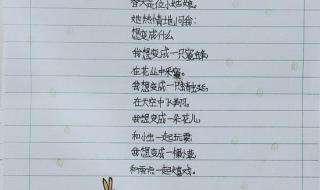 春天是位小姑娘。
她热情地问我:
想变成什么
我想变成一只蜜蜂,
在花丛中采蜜。
我想变成一只蜻蜓,
在天空中飞舞。
我想变成一朵花儿,
和小虫一起玩耍。
我想变成一棵小草,
和雨点一起嬉戏。